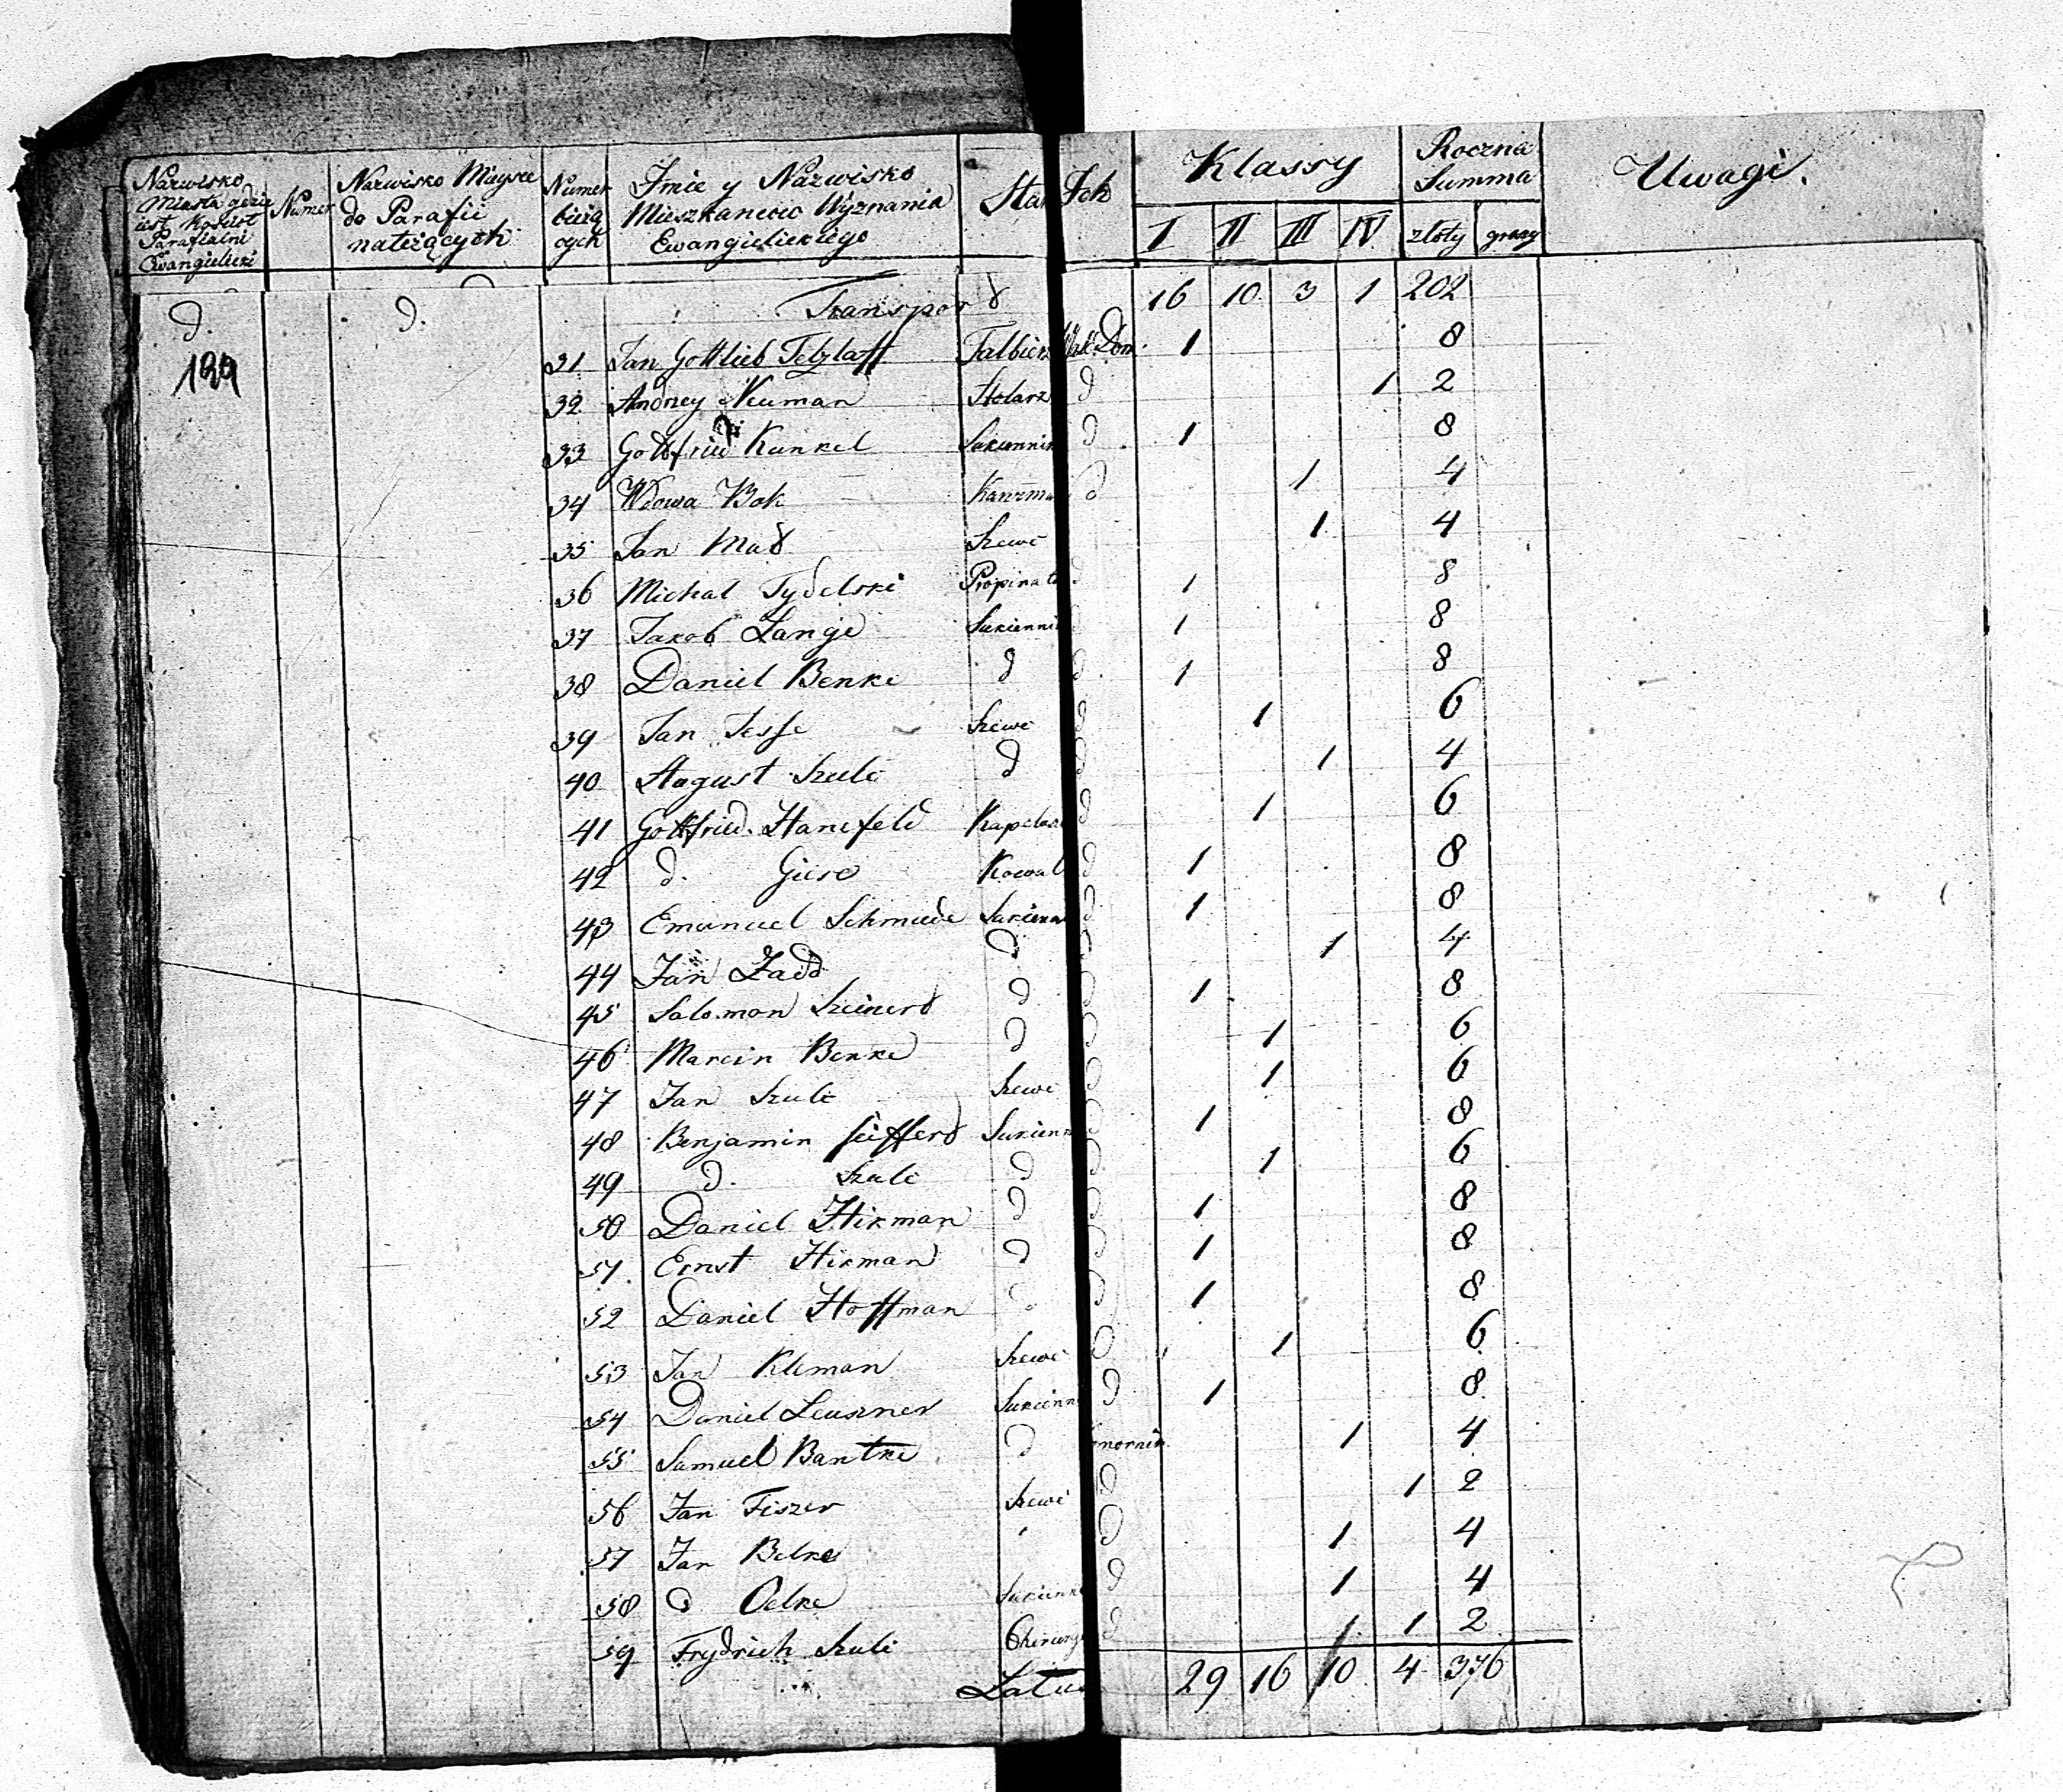 Nazwisko Miasta gdzie iest Kościoł Parafialni Ewangielicki | Numer | Nazwisko Mieysc do Parafii należących | Numer bieżących | Imie y Nazwisko Mieszkancow Wyznania Ewangielickiego | Stan Ich | Klassy I II III IV | Roczna Summa złoty groszy | Uwagi.
d. d. Transport 16 10 3 1 202
189
31 Jan Gottlieb Tetzlaff Falbierz Wlaś: Dom. 1 8
32 Andrzey Neuman Stolarz d 1 2
33 Gottfried Kunkel Sukiennik d 1 8
34 Wdowa Bok d 1 4
35 Jan Mad Szewc 1 4
36 Michal Tydelski Propinator d 1 8
37 Jakob Lange Sukiennik 1 8
38 Daniel Benke d d. 1 8
39 Jan Jesse Szewc d 1 6
40 August Szulc d d 1 4
41 Gottfried Hanefeld Kapelusz d 1 6
42 d. Giese Kowal d 1 8
43 Emanuel Schmude Sukienni d 1 8
44 Jan Zadd d d 1 4
45 Salomon Szeinert d d 1 8
46 Marcin Benke d d 1 6
47 Jan Szulc Szewc d 1 6
48 Benjamin Seiffert Sukienn d 1 8
49 d. Szulc d d 1 6
50 Daniel Hikman d d 1 8
51 Ernst Hikman d d 1 8
52 Daniel Hoffman d d 1 8
53 Jan Kleman Szewc d 1 6
54 Daniel Leuszner Sukienn d 1 8
55 Samuel Bantke d Komornik 1 4
56 Jan Fiszer Szewc d 1 2
57 Jan Belke d 1 4
58 d Oelke Sukienni d 1 4
59 Frydrich Szulc Chirurg d 1 2
Latus 29 16 10 4 376